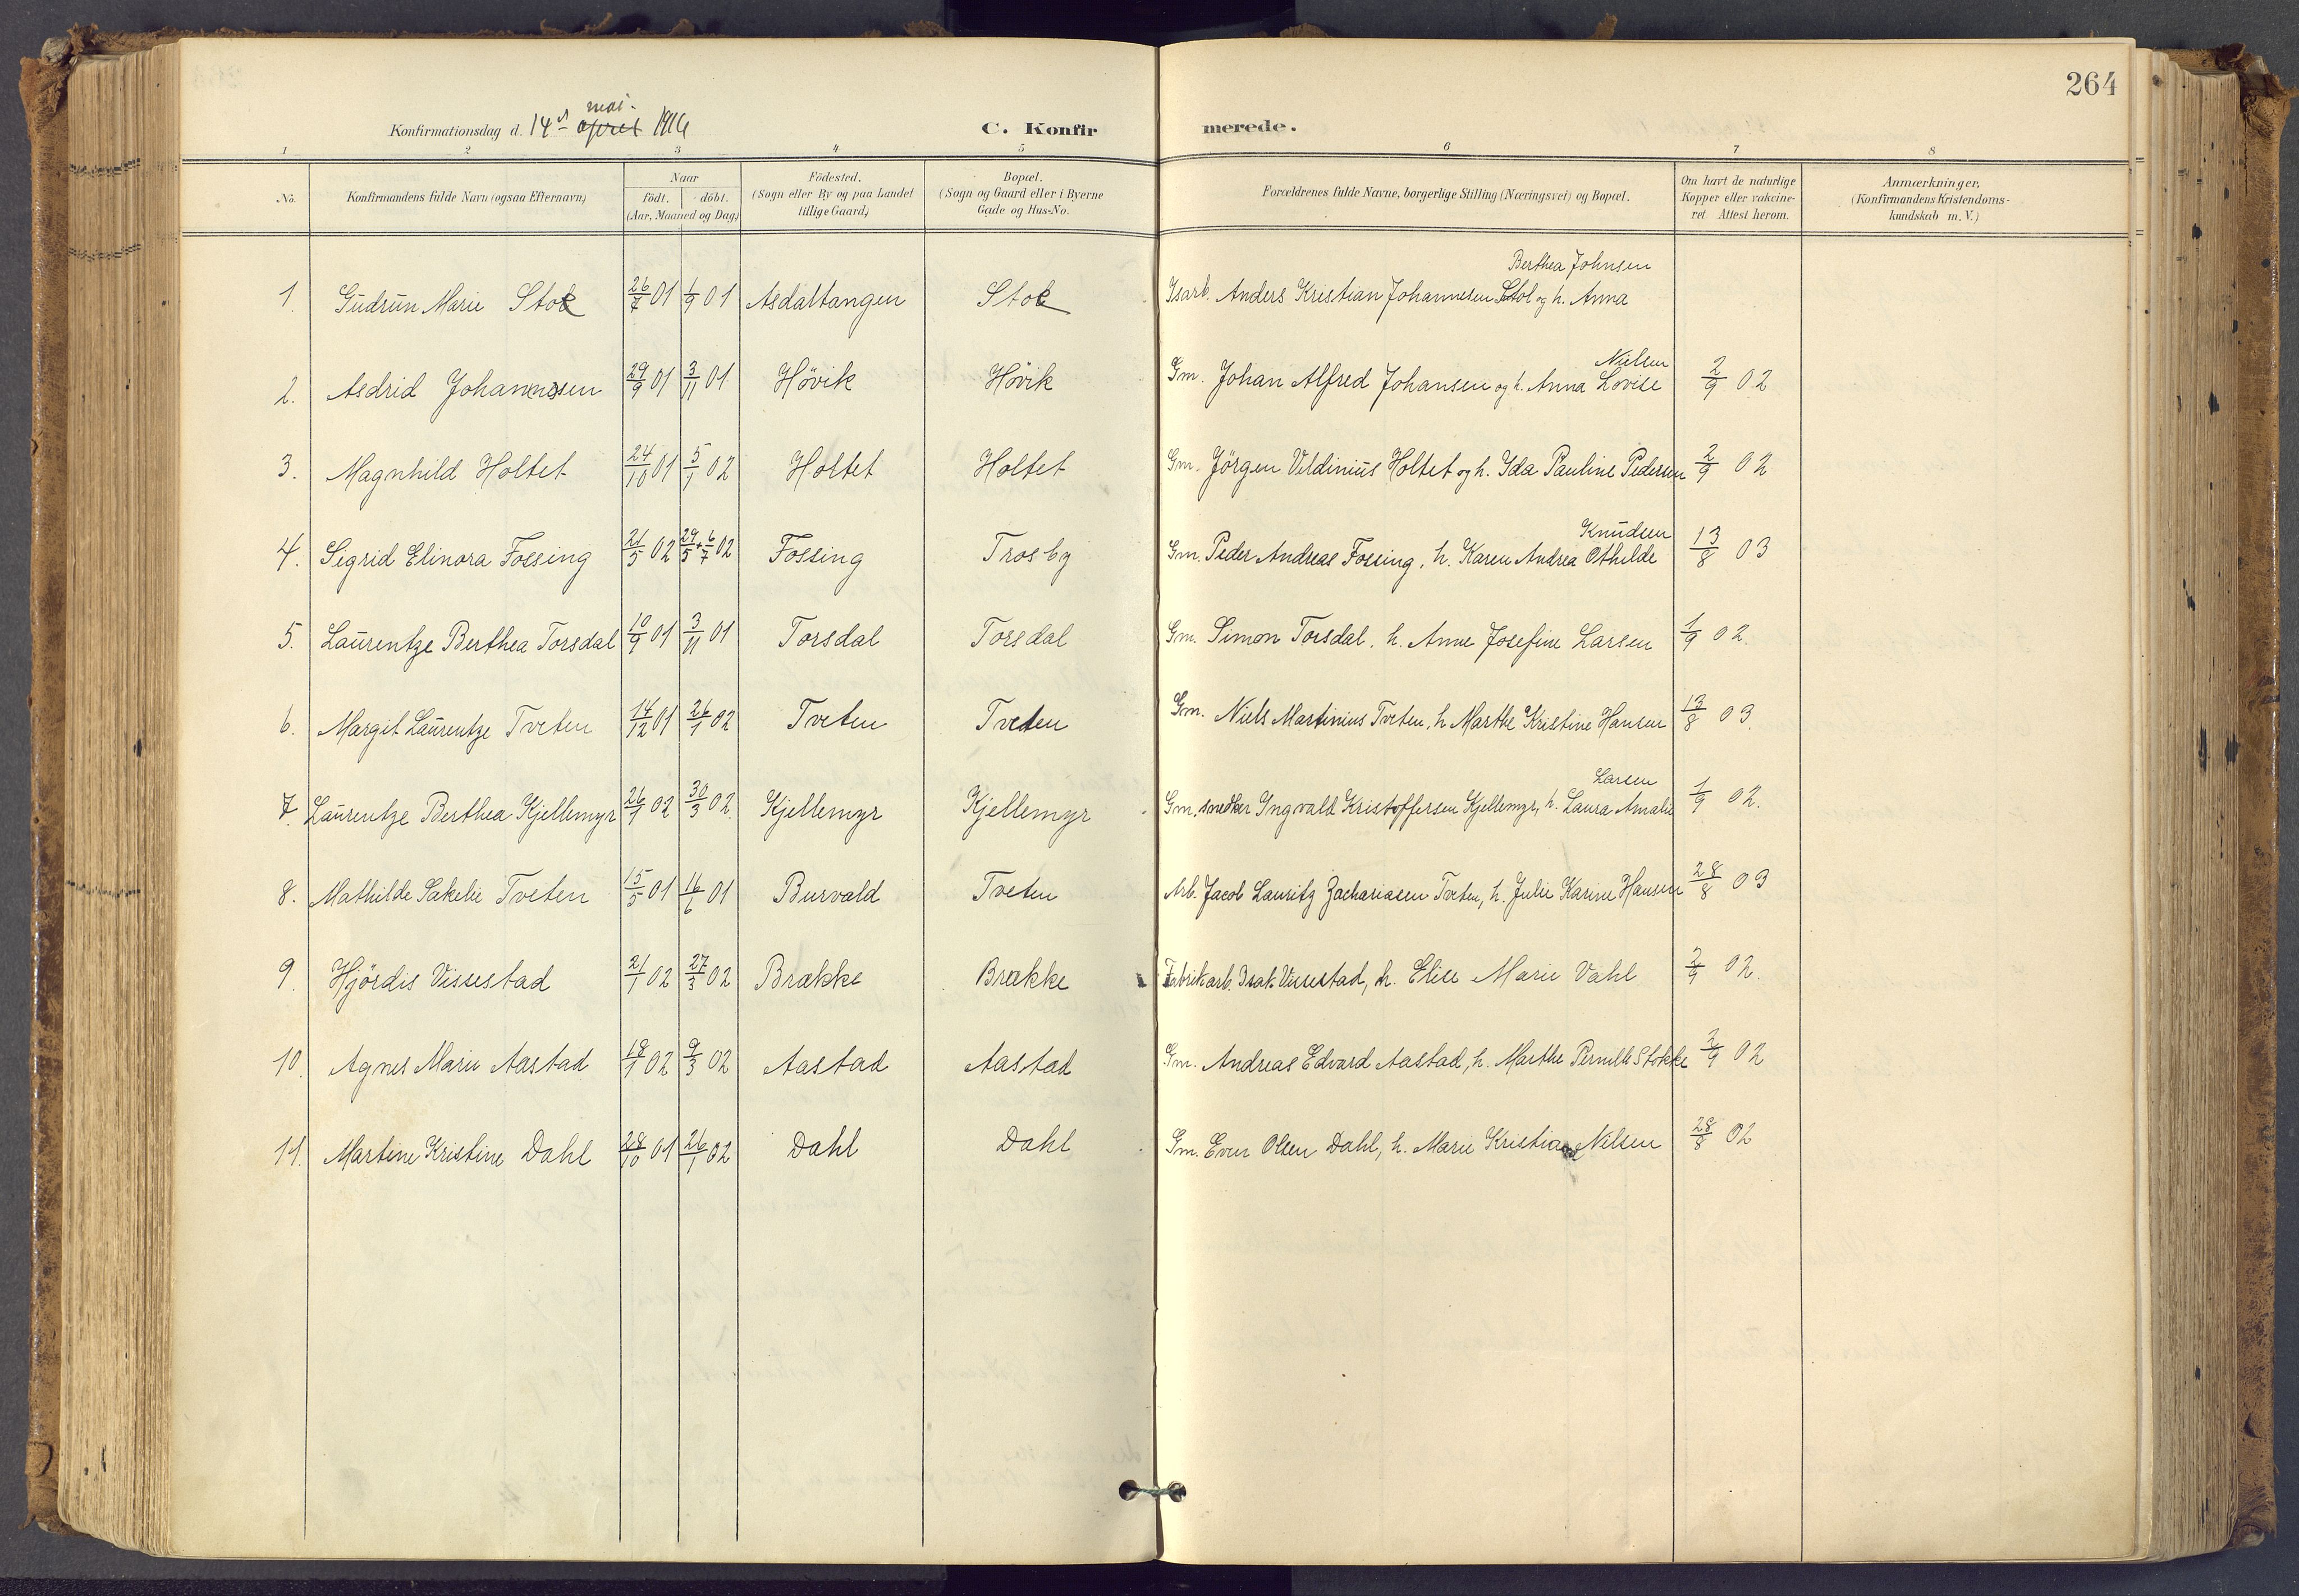 264
mai.
Konfirmationsdag d. 14de april 1916 C. Konfirmerede.
1 2 3 4 5 6 7 8
No. Konfirmandens fulde Navn (ogsaa Efternavn) Naar födt. döbt. (Aar, Maaned og Dag) Födested. (Sogn eller By og paa Landet tillige Gaard) Bopæl. (Sogn og Gaard eller i Byerne Gade og Hus-No. Forældrenes fulde Navne, borgerlige Stilling (Næringsvei) og Bopæl. Om havt de naturlige Kopper eller vakcineret Attest herom. Anmærkninger, (Konfirmandens Kristendomskundskab m. V.)
Berthea Johnsen
1. Gudrun Marie Stok 26/7 01 1/9 01 Asdaltangen Stok Isarb. Anders Kristian Johannesen Stol og h. Anna
Nielsen
2. Asdrid Johannssen 29/9 01 3/11 01 Hövik Hövik Gm. Johan Alfred Johansen og h. Anna Lovise 2/9 02
3. Magnhild Holtet 24/10 01 5/1 02 Holtet Holtet Gm. Jörgen Veldinius Holtet og h. Ida Pauline Pedersen 2/9 02
Knudsen
4. Sigrid Elinora Fossing 21/5 02 29/5 + 6/7 02 Fossing Trosby Gm. Peder Andreas Fossing, h. Karen Andrea Othilde 13/8 03
5. Laurentze Berthea Torsdal 10/9 01 3/11 01 Torsdal Torsdal Gm. Simon Torsdal, h. Anne Josefine Larsen 1/9 02.
6. Margit Laurentze Tveten 14/12 01 26/1 02 Tveten Tveten Gm. Niels Martinius Tveten, h Marthe Kristine Hansen 13/8 03.
Larsen
7. Laurentze Berthea Kjellemyr 26/1 02 30/3 02. Kjellemyr Kjellemyr Gm. snedker Ingvald Kristoffersen Kjellemyr, h. Laura Amalie 1/9 02.
8. Mathilde Sakelie Tveten 15/5 01 16/6 01 Burvald Tveten Arb. Jacob Lauritz Zachariasen Tveten, h. Julie Karine Hansen 28/8 03
9. Hjördis Vissestad 21/1 02 27/3 02 Brække Brække Fabrikarb. Isak Vissestad, h. Elise Marie Vahl 2/9 02.
10. Agnes Marie Aastad 18/1 02 9/3 02 Aastad Aastad Gm. Andreas Edvard Aastad, h. Marthe Pernille Stokke 2/9 02
11. Martine Kristine Dahl 28/10 01 26/1 02 Dahl Dahl Gm. Even Olsen Dahl, h. Marie Kristiane Nilsen 28/8 02